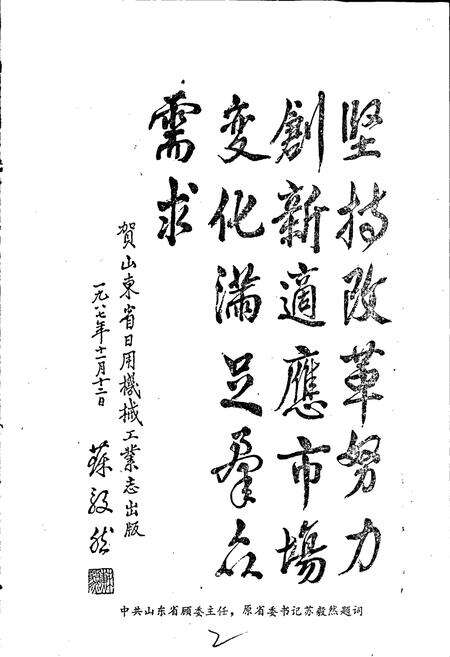 坚持改革努力
創新適應市場
变化满足群众
需求
贺山東省日用機械工業志出版
一九八七年十一月十二日
蘇毅然
中共山东省顾委主任，原省委书记苏毅然题词
2